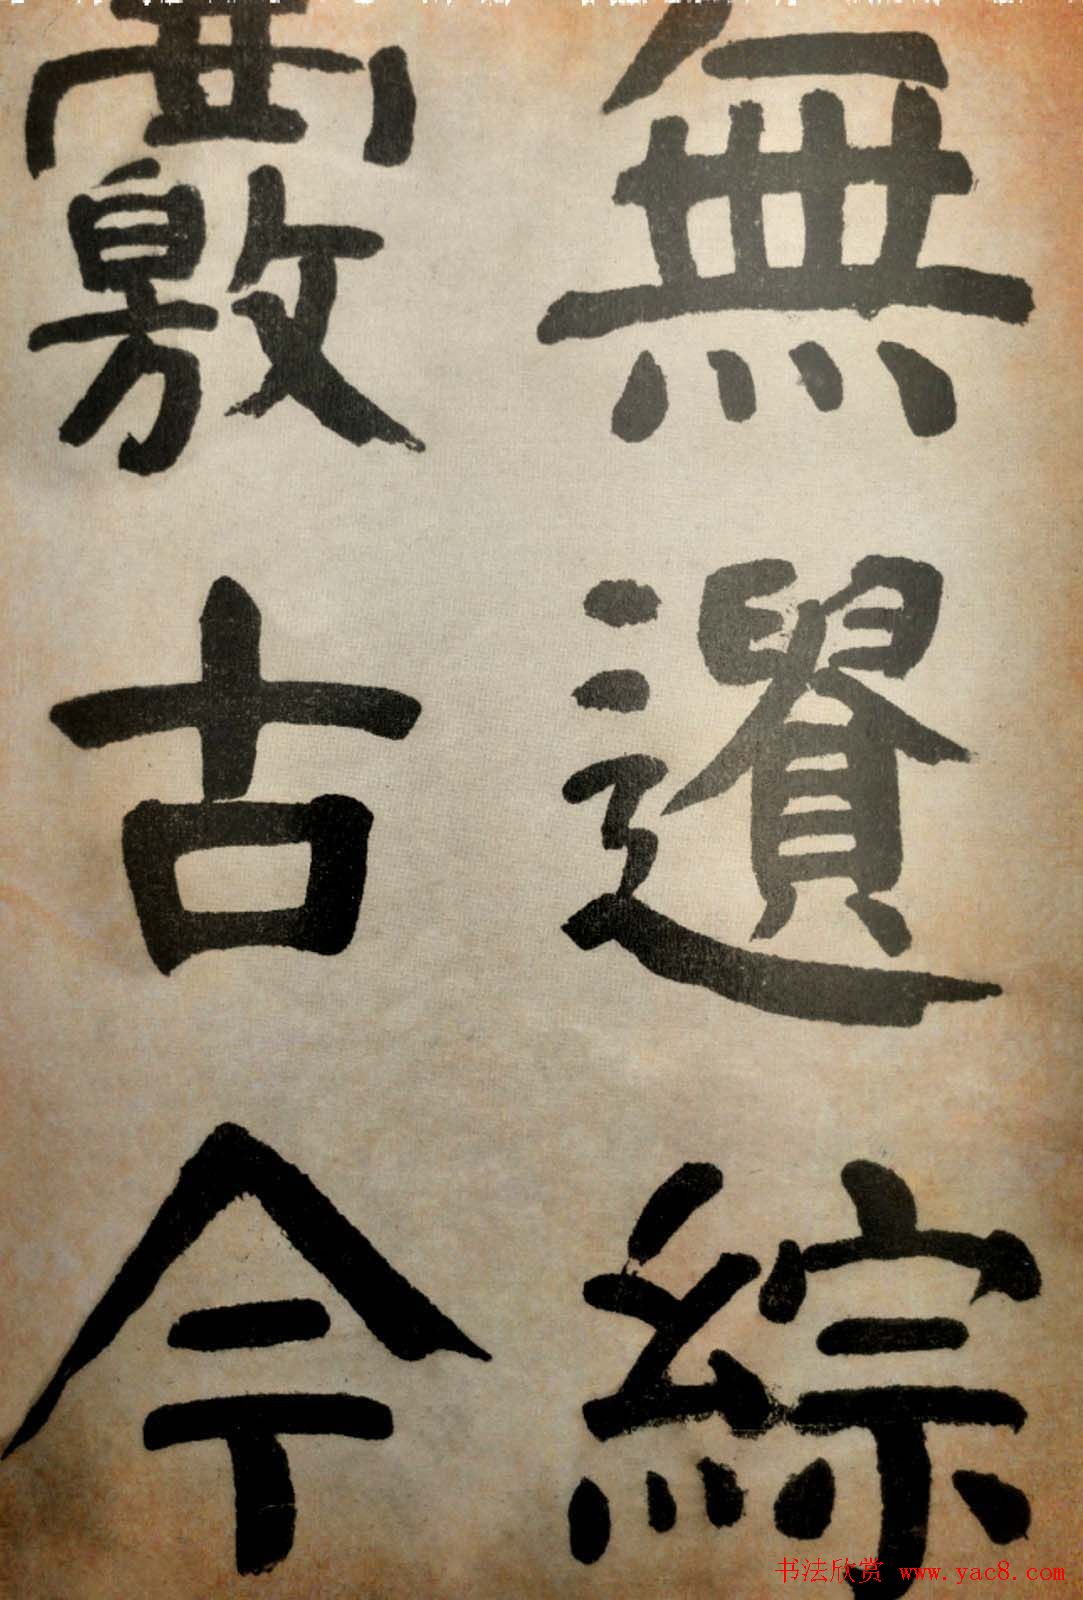 無遺綜
覈古今
书法欣赏 www.yac8.com